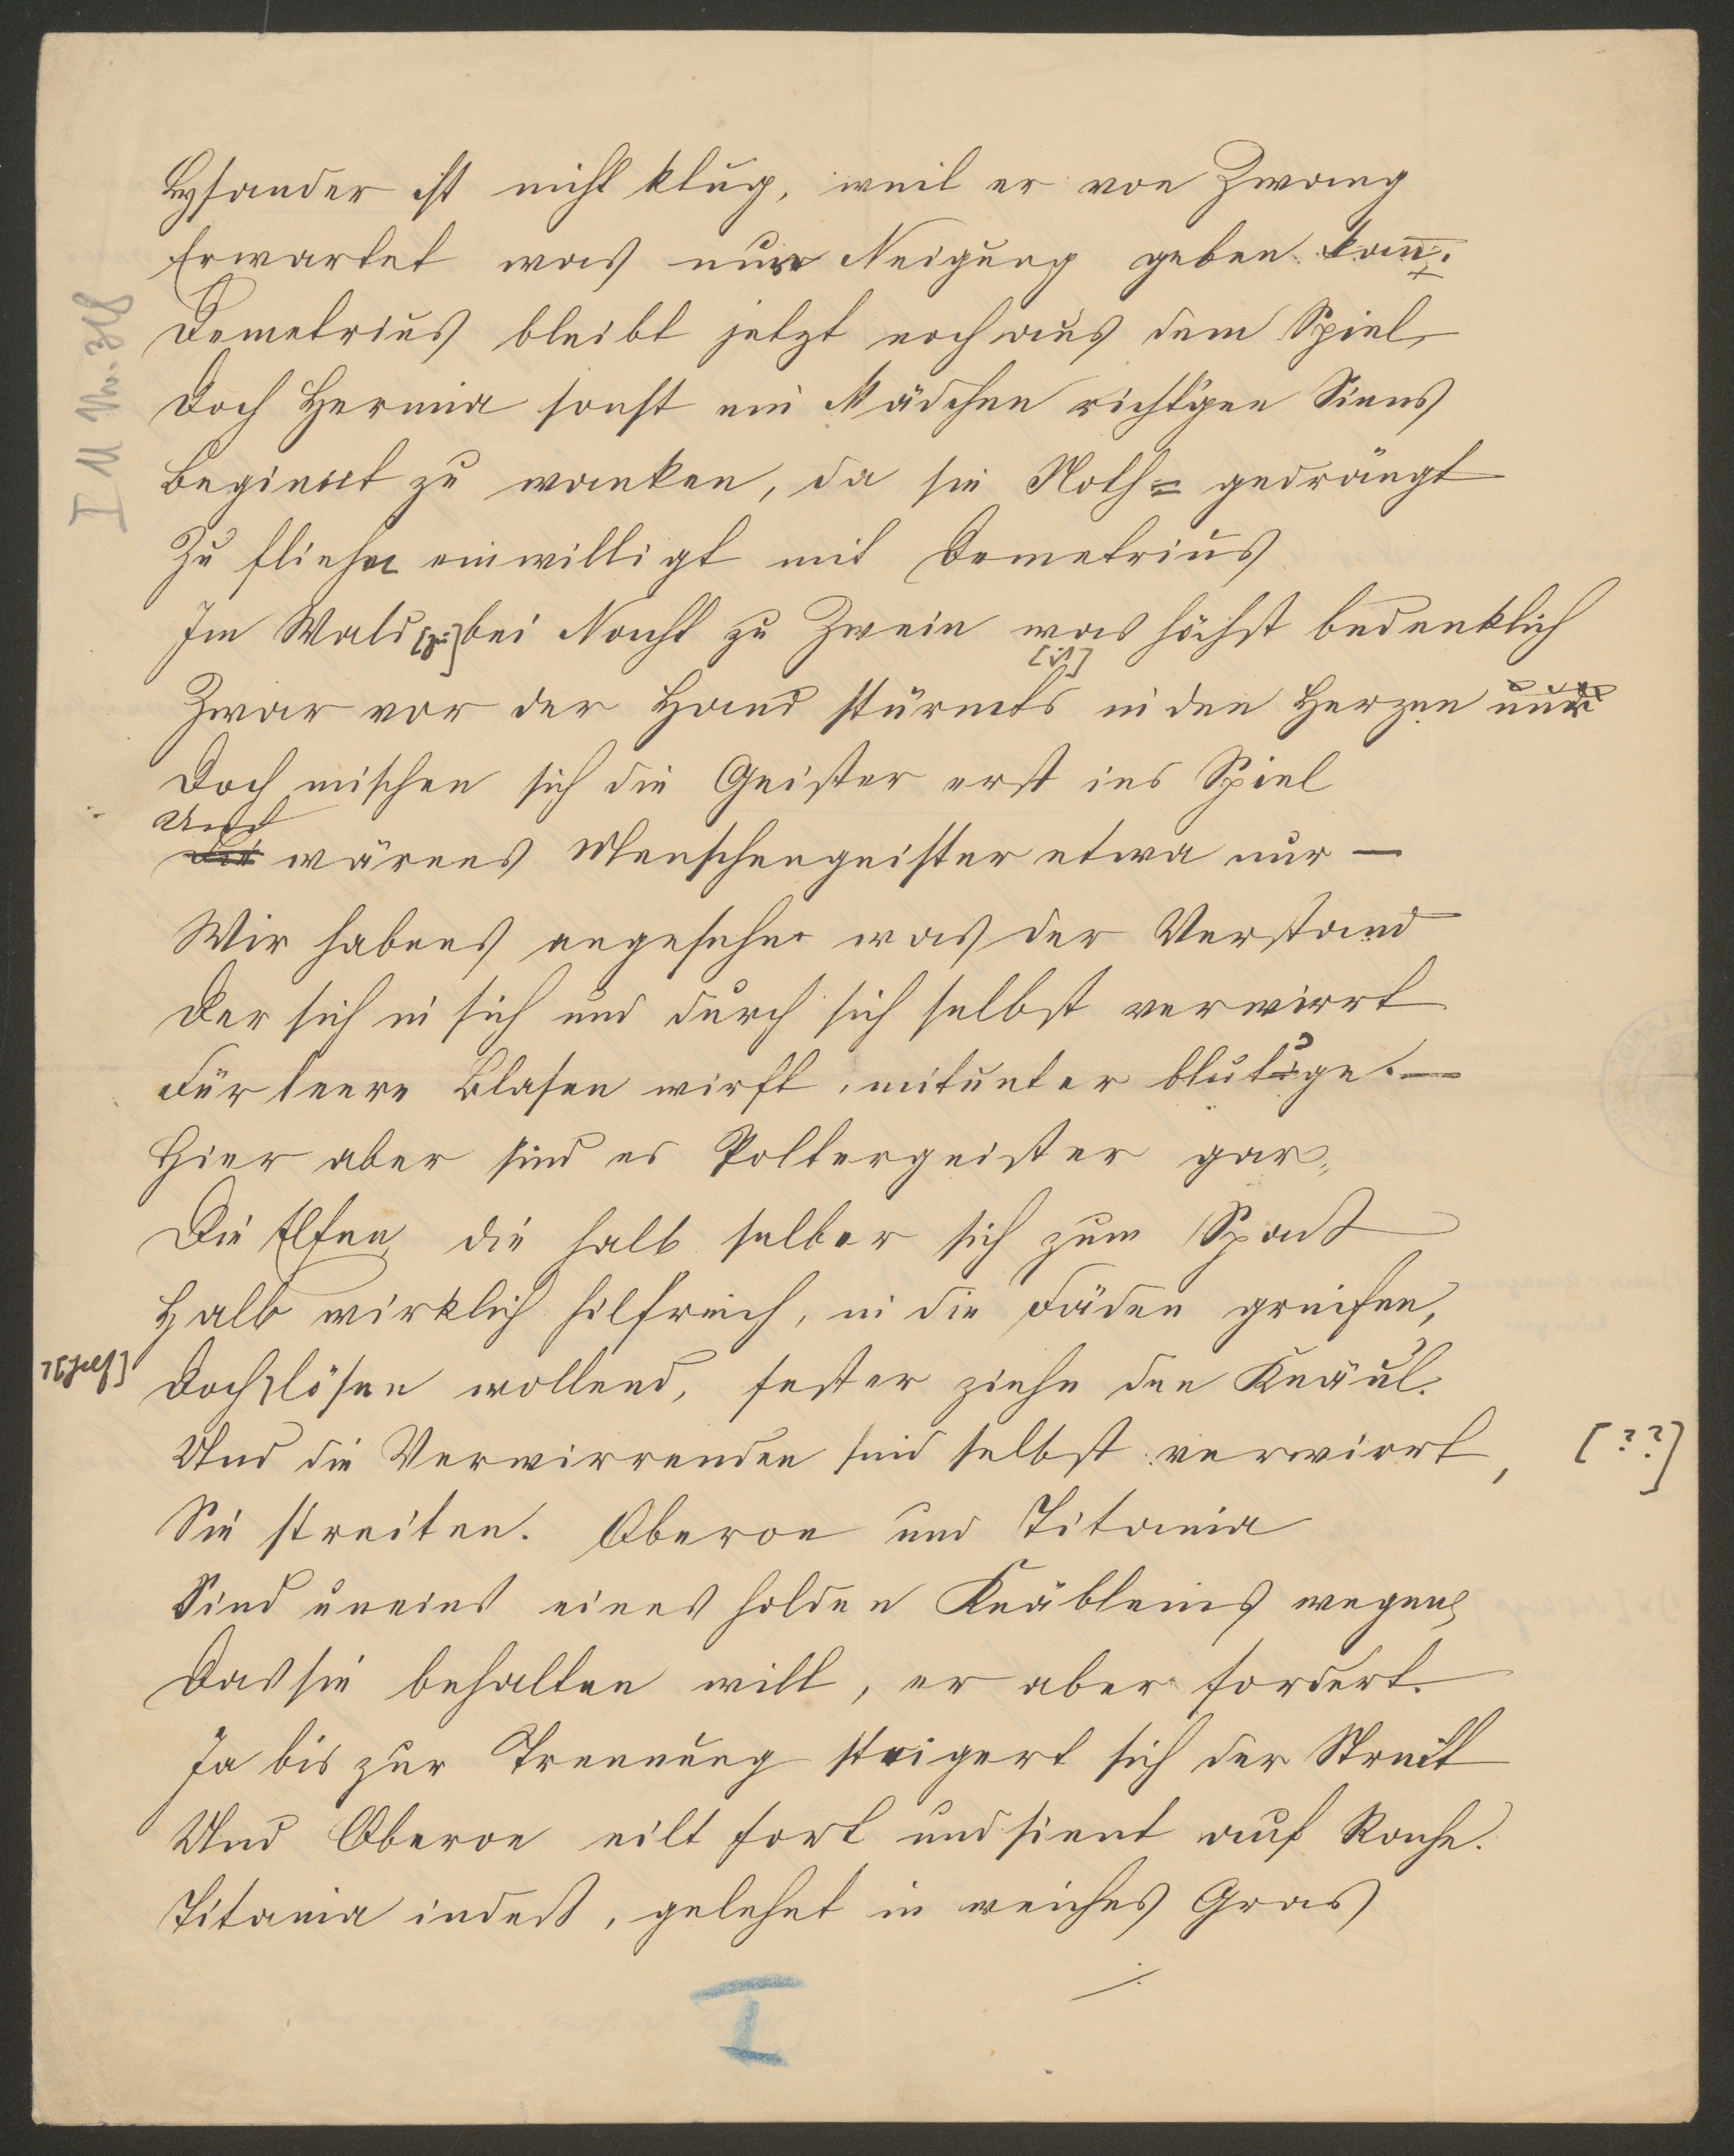 Lysander ist nicht klug, weil er von Zwang
Erwartet was nur Neigung geben kann.
Demetrius bleibt jetzt noch aus dem Spiel,
Doch Hermia sonst ein Mädchen richt'gen Sinns
Beginnt zu wanken, da sie Noth= gedrängt
Zu fliehn einwilligt mit Demetrius
Im Wald bei Nacht zu Zwein was höchst bedenklich
[ist]
Zwar vor der Hand stürmts in den Herzen nur
Doch mischen sich die Geister erst ins Spiel
Und
Die wärens Menschengeister etwa nur —
Wir habens angesehn was der Verstand
Der sich in sich und durch sich selbst verwirrt
Für leere Blasen wirft, mitunter blut'ge. —
Hier aber sind es Poltergeister gar,
Die Elfen die halb selber sich zum Spaß
Halb wirklich hilfreich, in die Fäden greifen,
Doch lösen wollend, fester ziehn den Knäul.
Und die Verwirrenden sind selbst verwirrt, [??]
Sie streiten. Oberon und Titania
Sind uneins eines holden Knäbleins wegen,
Das sie behalten will, er aber fordert.
Ja bis zur Trennung steigert sich der Streit
Und Oberon eilt fort und sinnt auf Rache.
Titania indeß, gelehnt in weiches Gras
I